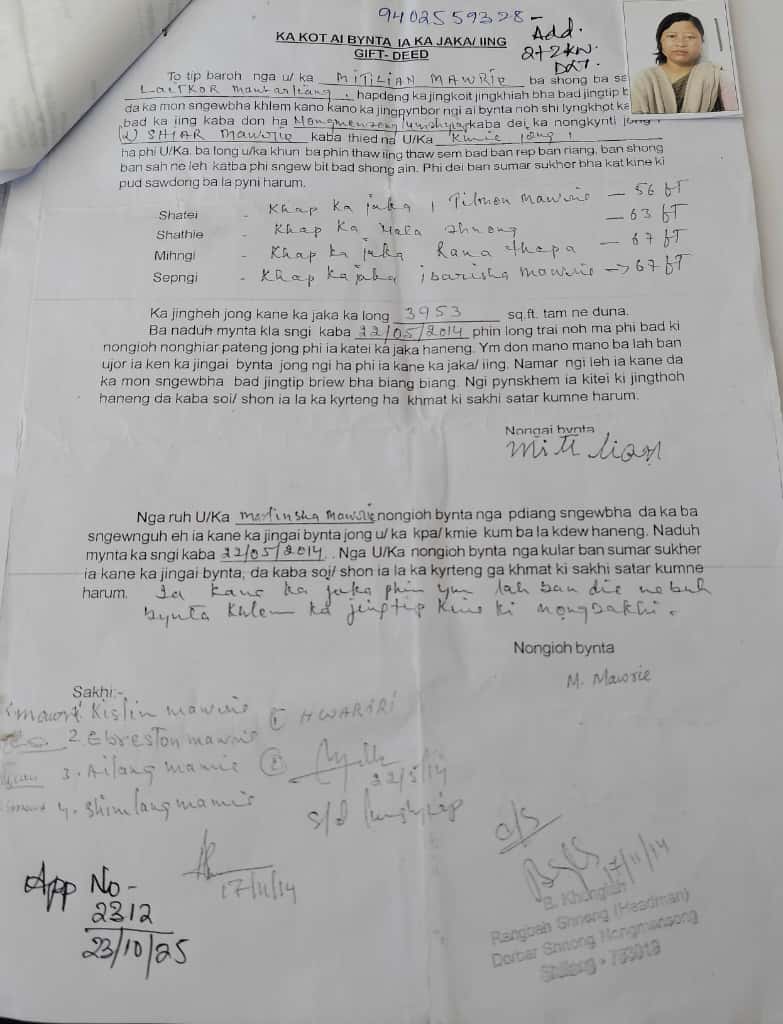 9402559328-
Add.
2+2kw.
DAT.
KA KOT AI BYNTA IA KA JAKA/ IING
GIFT- DEED
To tip baroh nga u/ ka MITILIAN MAWRIE ba shong ba sa
LAITKOR Mawbarliang, hapdeng ka jingkoit jingkhiah bha bad jingtip b
da ka mon sngewbha khlem kano kano ka jingpynbor ngi ai bynta noh shi lyngkhot ka
bad ka iing kaba don ha Nongmensong lumshyiap kaba dei ka nongkynti jong
(L) SHIAR Mawrie kaba thied na U/Ka Kmie jong i
ha phi U/Ka. ba long u/ka khun ba phin thaw iing thaw sem bad ban rep ban riang, ban shong
ban sah ne leh katba phi sngew bit bad shong ain. Phi dei ban sumar sukher bha kat kine ki
pud sawdong ba la pyni harum.
Shatei - Khap ka jaka i Tilmon Mawrie - 56 fT
Shathie - Khap Ka Mala shnong - 63 fT
Mihngi - Khap ka jaka Rana thapa - 67 fT
Sepngi - Khap Ka jaka ibarisha Mawrie -> 67 fT
Ka jingheh jong kane ka jaka ka long 3953 sq.ft. tam ne duna.
Ba naduh mynta kla sngi kaba 22/05/2014 phin long trai noh ma phi bad ki
nongioh nonghiar pateng jong phi ia katei ka jaka haneng. Ym don mano mano ba lah ban
ujor ia ken ka jingai bynta jong ngi ha phi ia kane ka jaka/ iing. Namar ngi leh ia kane da
ka mon sngewbha bad jingtip briew bha biang biang. Ngi pynskhem ia kitei ki jingthoh
haneng da kaba soi/ shon ia la ka kyrteng ha khmat ki sakhi satar kumne harum.
Nongai bynta
Mitilian
Nga ruh U/Ka Martinsha Mawrie nongioh bynta nga pdiang sngewbha da ka ba
sngewnguh eh ia kane ka jingai bynta jong u/ ka kpa/ kmie kum ba la kdew haneng. Naduh
mynta ka sngi kaba 22/05/2014. Nga U/Ka nongioh bynta nga kular ban sumar sukher
ia kane ka jingai bynta, da kaba soi/ shon ia la ka kyrteng ga khmat ki sakhi satar kumne
harum. Ia kane ka jaka phin ym lah ban die ne buh
bynta khlem ka jingtip kine ki nongsakhi.
Nongioh bynta
M. Mawrie
Sakhi:-
1. Kislin mawrie ① HWARIRI
2. Ebreston mawrie
3. Ailang mawrie ②
22/5/14
4. Shimlang mawrie S/d lumshyiap
17/11/14
c/s
17/11/14
B. Khongiah
Rangbah Shnong (Headman)
Dorbar Shnong Nongmensong
Shillong - 793019
App No-
2312
23/10/25